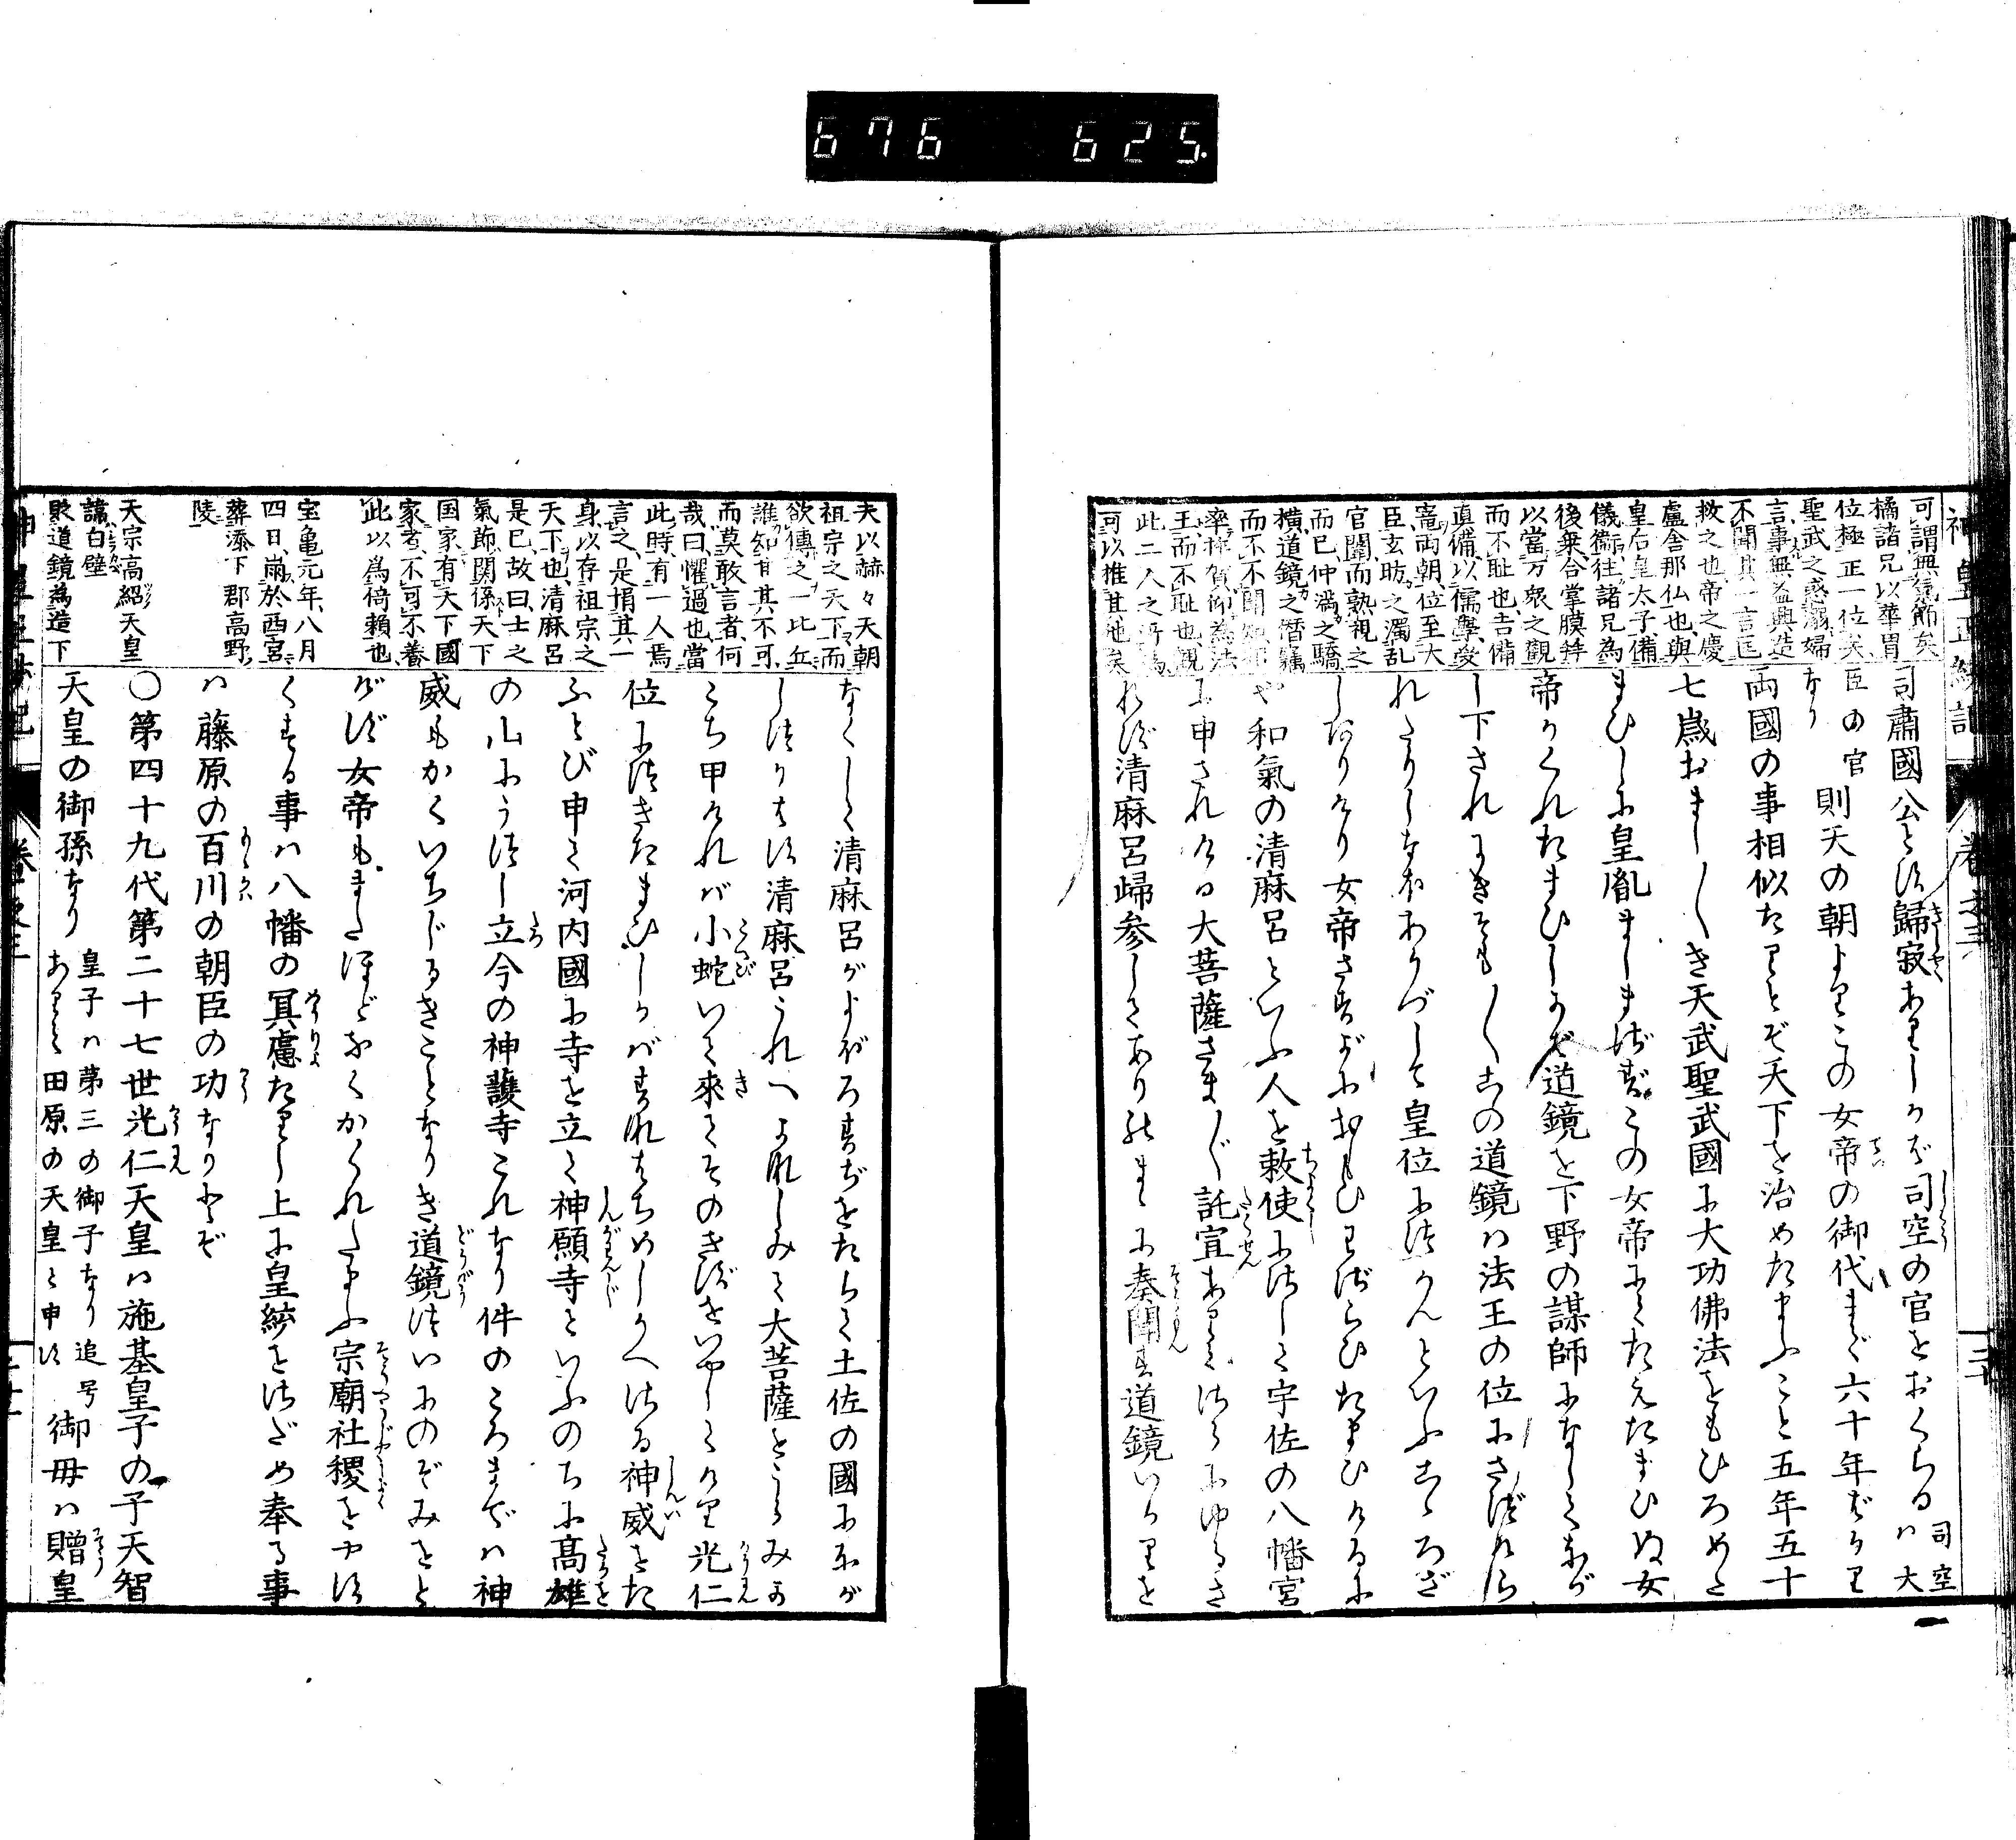 676 625.
神皇正統記 巻之三
可謂無氣節矣
橘諸兄以華冑
位極正一位矣
聖武之惑溺婦
言事無益興造
不聞其一言匡
救之也帝之慶
盧舎那仏也與
皇后皇太子備
儀衞往諸兄為
後乗合掌膜拝
以當万衆之觀
而不耻也吉備
真備以儒學受
寵両朝位至大
臣玄昉之濁乱
官闈而熟視之
而已仲満之驕
横道鏡之僭竊
而不不聞
率拝賀仰為法
王而不耻也觀
此二人之所為
可以推其他矣
司肅國公とす歸寂ありしかば司空の官をおくらるハ 司空 大
臣の官 なり 則天の朝よりこの女帝の御代まで六十年ばかり
両國の事相似たりとぞ天下を治めたまふこと五年五十
七歳おまし〳〵き天武聖武國に大功佛法をもひろめた
まひしに皇胤ましまさずこの女帝にてたえたまひぬ女
帝かくれたまひしかば道鏡を下野の講師になしてなが
し下されにきそも〳〵この道鏡ハ法王の位にさづけら
れたりしなほあかずして皇位につかんといふこゝろざ
しありけり女帝さすがにおもひわづらひたまひけるに
や和氣の清麻呂といふ人を敕使につかはして宇佐の八幡宮
に申されける大菩薩さま〴〵託宣ありてつひにゆるさ
れず清麻呂歸参してありのまゝに奏聞す道鏡いかりを
夫以赫々天朝
祖宗之天下而
欲傳之一比丘
誰知甘其不可
而莫敢言者何
哉曰懼過也當
此時有一人焉
言之是捐其一
身以存祖宗之
天下也清麻呂
是已故曰士之
氣節関係天下
国家有天下國
家者不可不養
此以為倚賴也
宝亀元年八月
四日崩於西宮
葬添下郡高野
陵
天宗高紹天皇
諱白壁
敗道鏡為造下
なして清麻呂がよぼろすぢをたちて土佐の國になが
しつかはす清麻呂うれへかなしみて大菩薩をうらみか
こち申けれバ小蛇いで來てそのきずをいやしてけり光仁
位につきたまひしかばすなはちめしかへさる神威をた
ふとび申て河内國に寺を立て神願寺といふのちに髙雄
の山にうつし立今の神護寺これなり件のころまでハ神
威もかくいちじるきことなりき道鏡つひにのぞみをと
げず女帝もまたほどなくかくれたまふ宗廟社稷をやす
くする事ハ八幡の冥慮たりし上に皇統をさだめ奉る事
ハ藤原の百川の朝臣の功なりとぞ
〇第四十九代第二十七世光仁天皇ハ施基皇子の子天智
天皇の御孫なり 皇子ハ第三の御子なり追号 ありて田原の天皇と申す 御母ハ贈皇